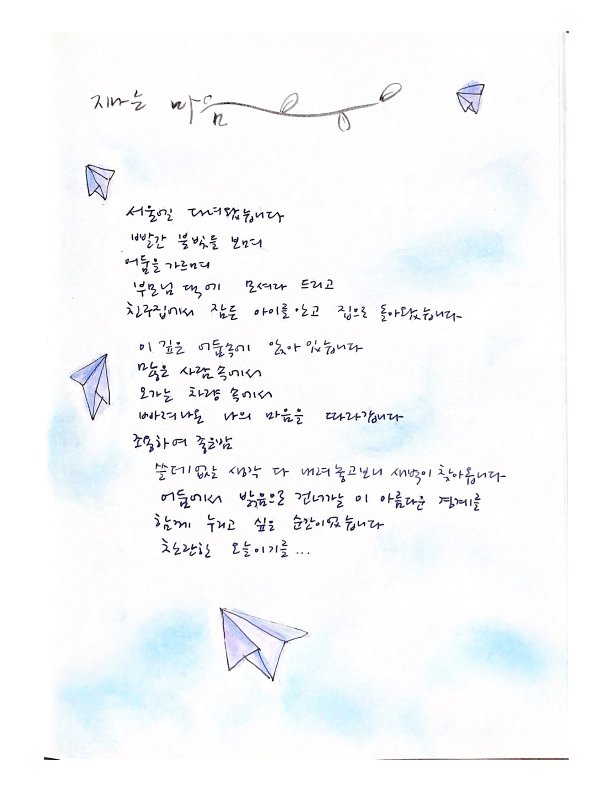 지나는 마음
서울엘 다녀왔습니다
빨간 불빛들 보며
어둠을 가르며
부모님 댁에 모셔다 드리고
친구집에서 잠든 아이를 안고 집으로 돌아왔습니다
이 깊은 어둠속에 앉아 있습니다
많은 사람 속에서
오가는 차량 속에서
빠져나온 나의 마음을 따라갑니다
조용하여 좋은밤
쓸데없는 생각 다 내려놓고보니 새벽이 찾아옵니다
어둠에서 밝음으로 건너가는 이 아름다운 경계를
함께 누리고 싶은 순간이었습니다
찬란한 오늘이기를...